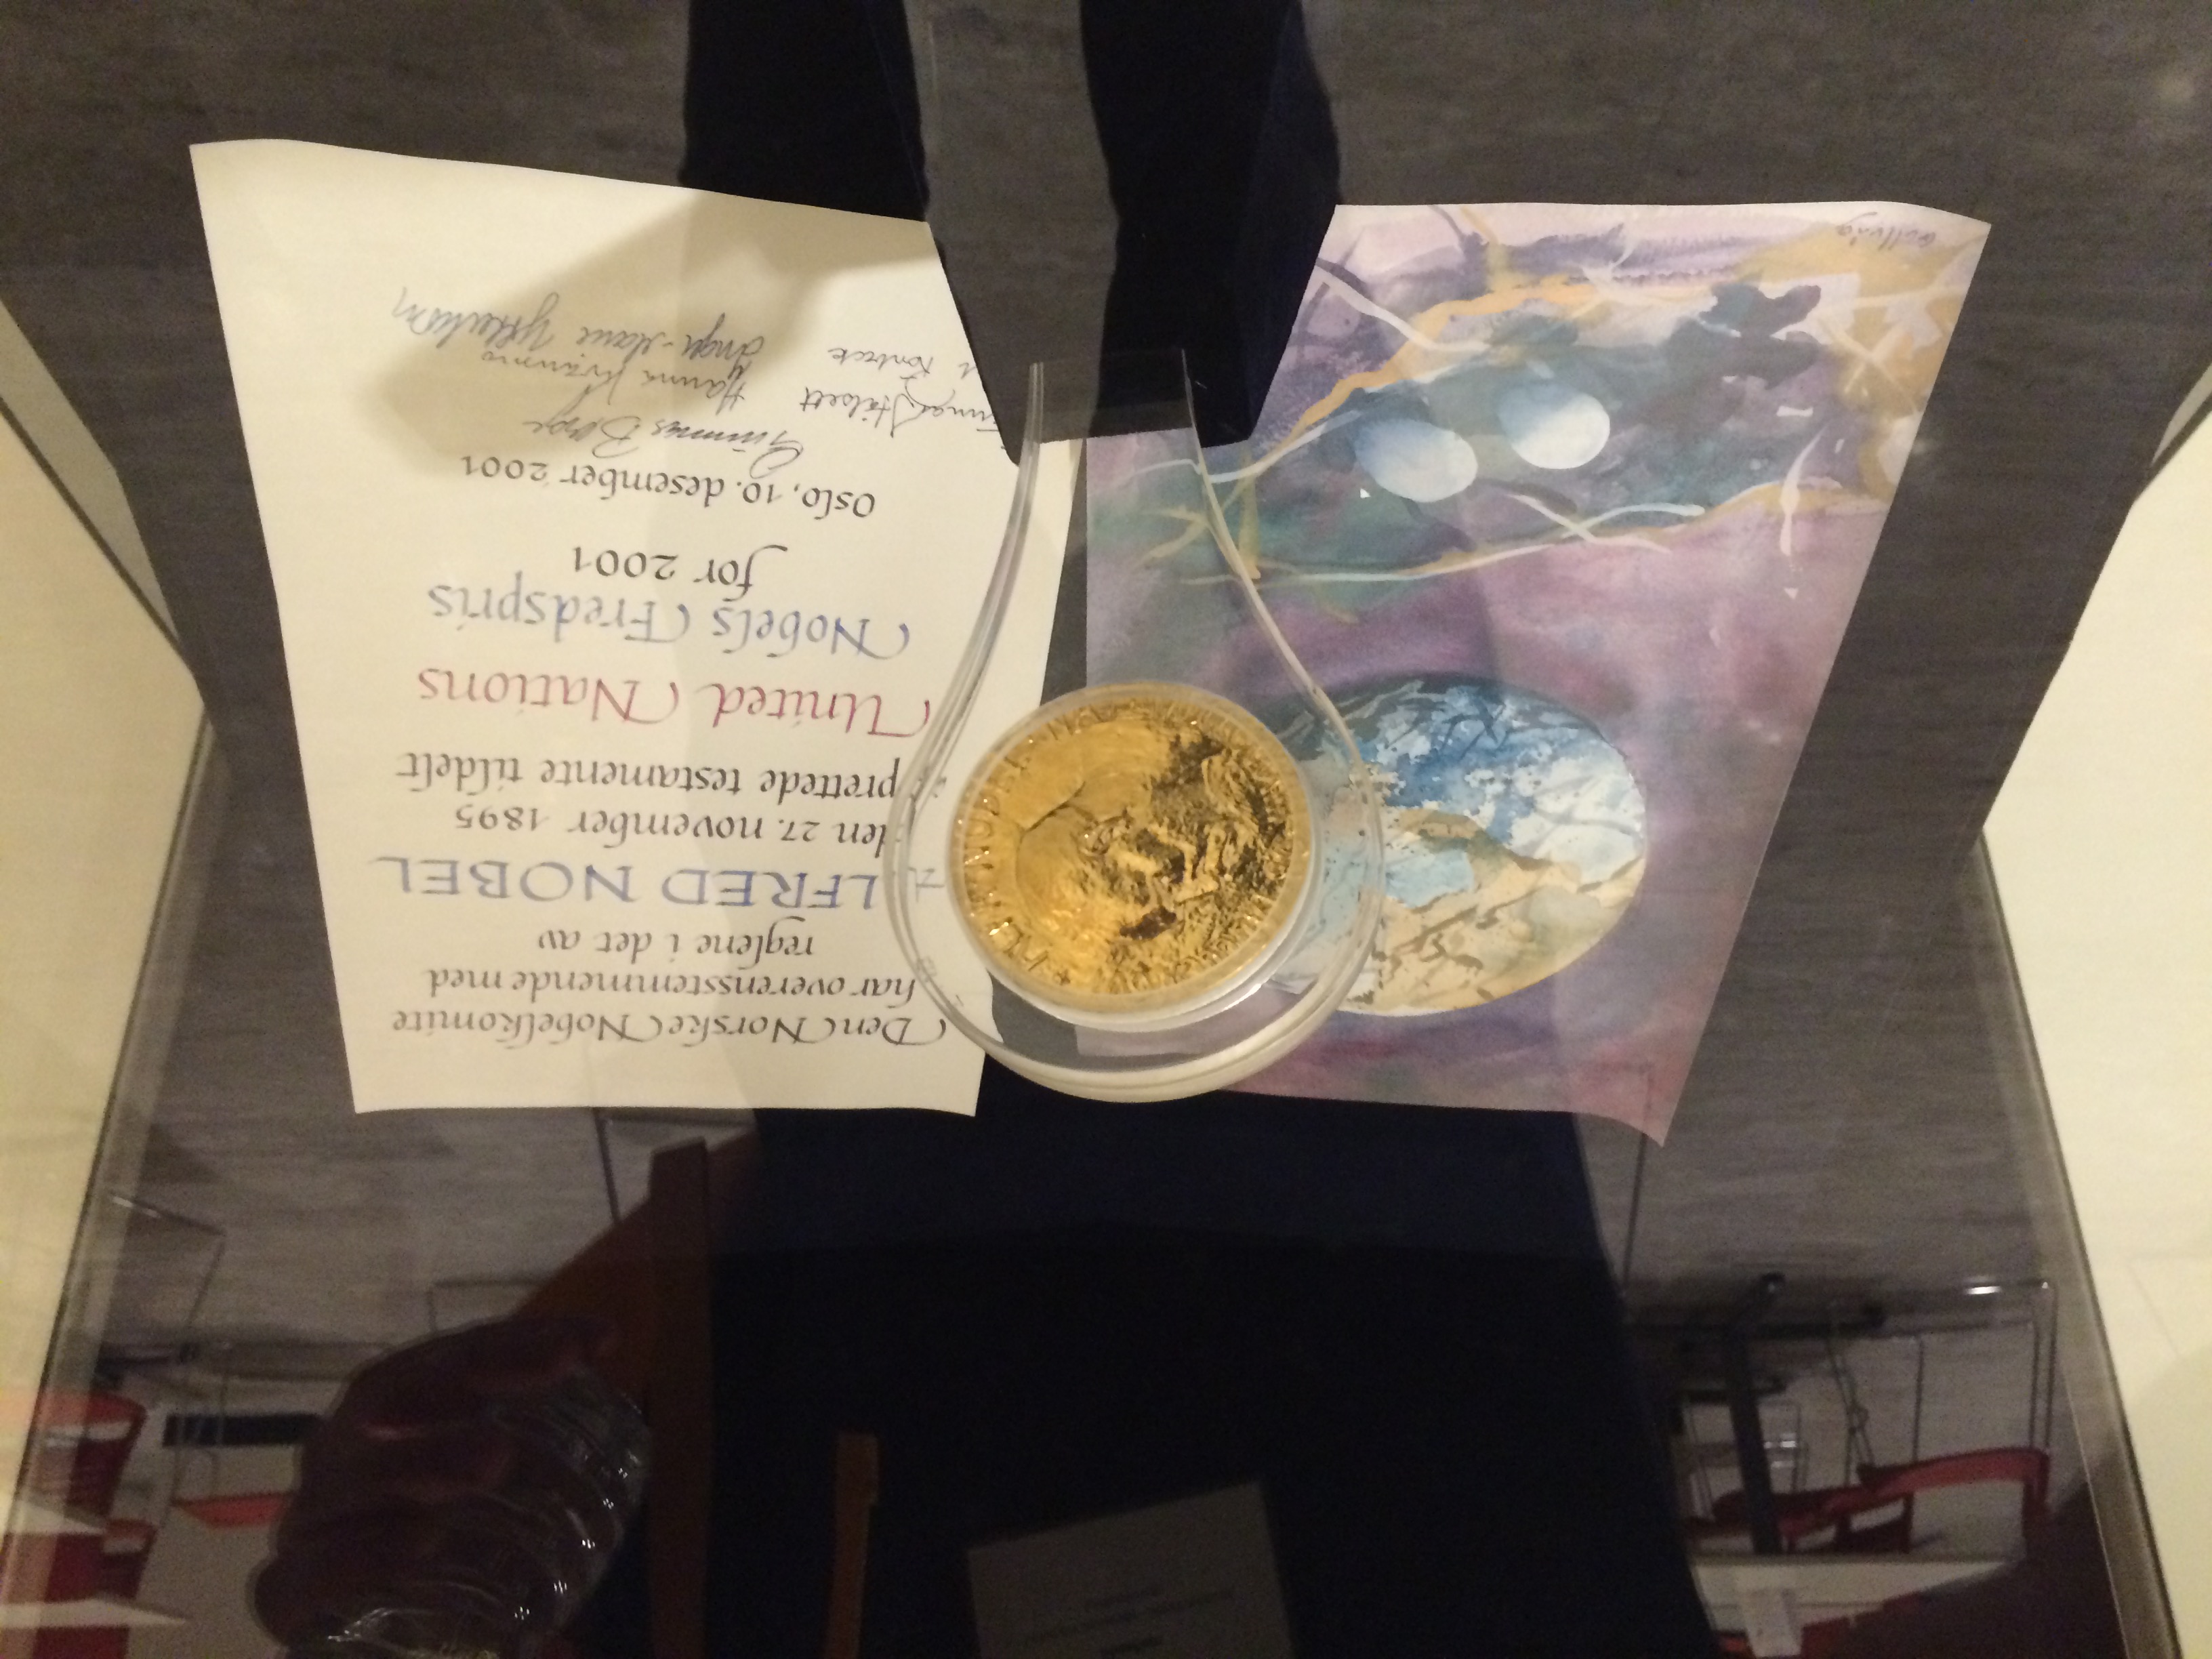 Den Norske Nobelkomite
har overensstemmende med
reglene i det av
ALFRED NOBEL
den 27. november 1895
opprettede testamente tildelt
United Nations
Nobels Fredspris
for 2001
Oslo, 10. desember 2001
Gunnar Berge
Gunnar Stålsett
Hanna Kvanmo
Inger-Marie Ytterhorn